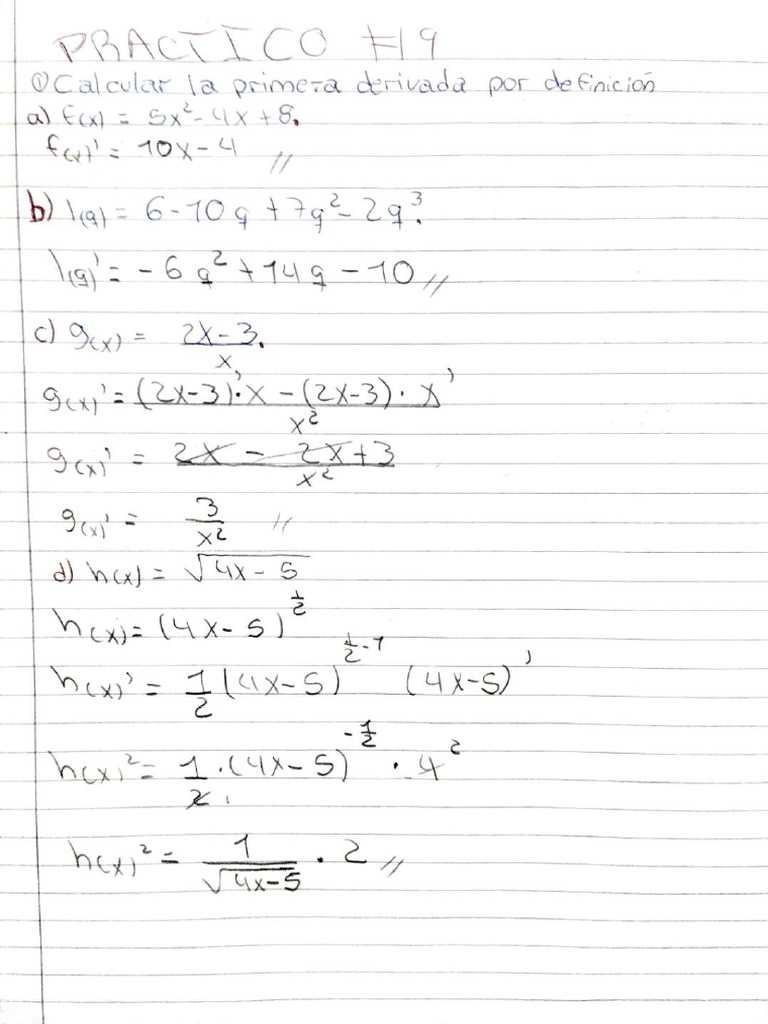 PRACTICO #19
① Calcular la primera derivada por definición
a) f(x) = 5x² - 4x + 8.
f(x)' = 10x - 4 //
b) l(q) = 6 - 10q + 7q² - 2q³.
l(q)' = -6q² + 14q - 10 //
c) g(x) = (2x - 3)/x.
g(x)' = ((2x-3)'·x - (2x-3)·x')/x²
g(x)' = (2x - 2x + 3)/x²
g(x)' = 3/x² //
d) h(x) = √(4x - 5)
h(x) = (4x - 5)^(1/2)
h(x)' = 1/2 (4x-5)^(1/2-1) (4x-5)'
h(x)² = 1/2 · (4x-5)^(-1/2) · 4²
h(x)² = 1/√(4x-5) · 2 //